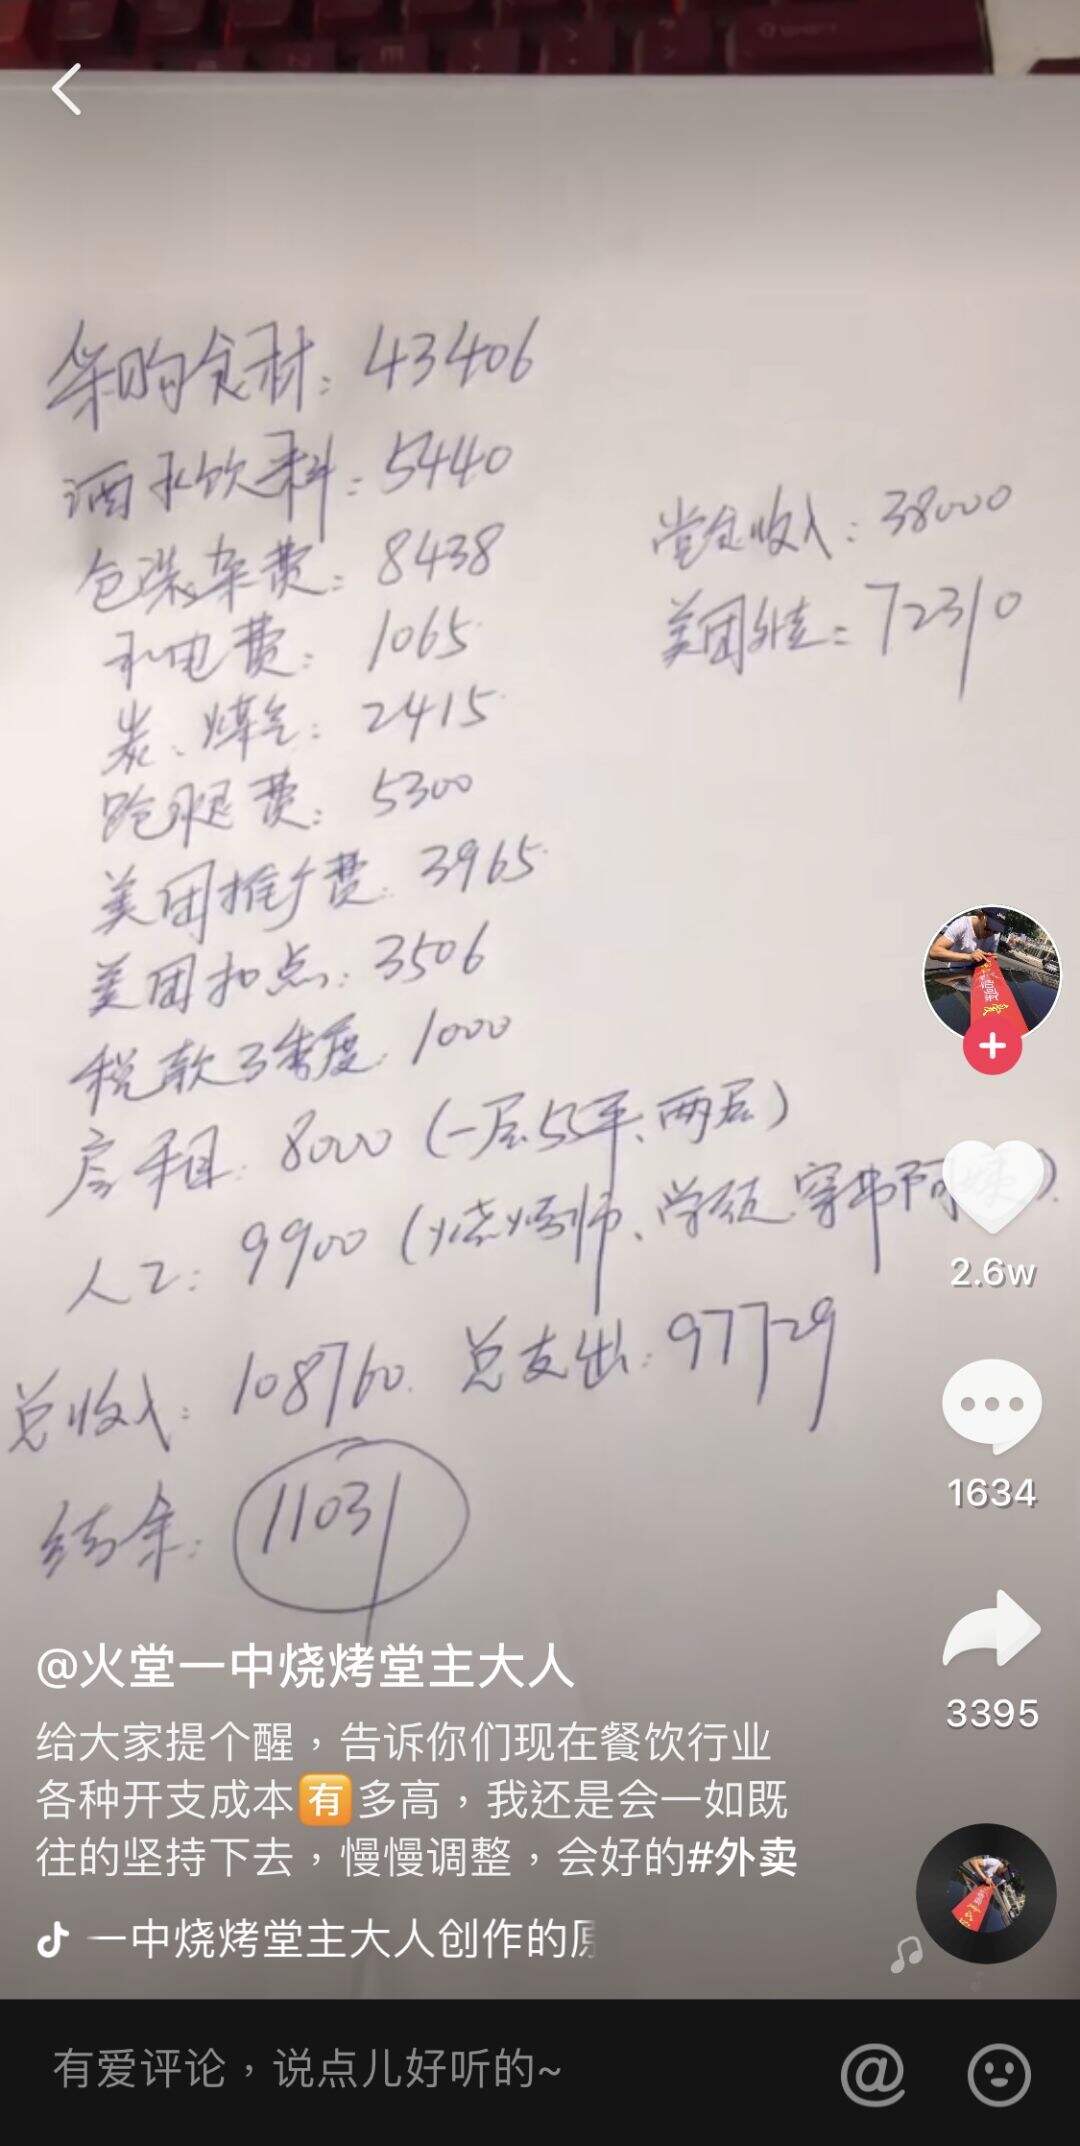 采购食材：43406
酒水饮料：5440
包装杂费：8438
水电费：1065
炭、煤气：2415
跑腿费：5300
美团推广费：3965
美团扣点：3506
税款季度：1000
房租：8000（一层55平、两层）
人工：9900（烧烤师、学徒、穿串阿姨）
堂食收入：38000
美团外卖：72310
总收入：108760. 总支出：97729
结余：11031
2.6w
1634
3395
@火堂一中烧烤堂主大人
给大家提个醒，告诉你们现在餐饮行业
各种开支成本🈶多高，我还是会一如既
往的坚持下去，慢慢调整，会好的#外卖
一中烧烤堂主大人创作的原
有爱评论，说点儿好听的~